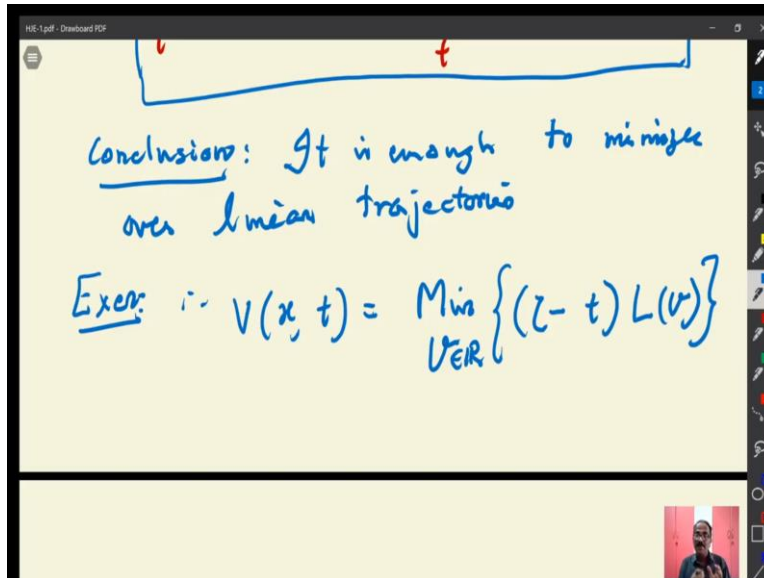 HJE-1.pdf - Drawboard PDF
t
Conclusion: It is enough to minimize
over linear trajectories
Exer: V(x, t) = Min {(τ - t) L(v)}
v∈ℝ